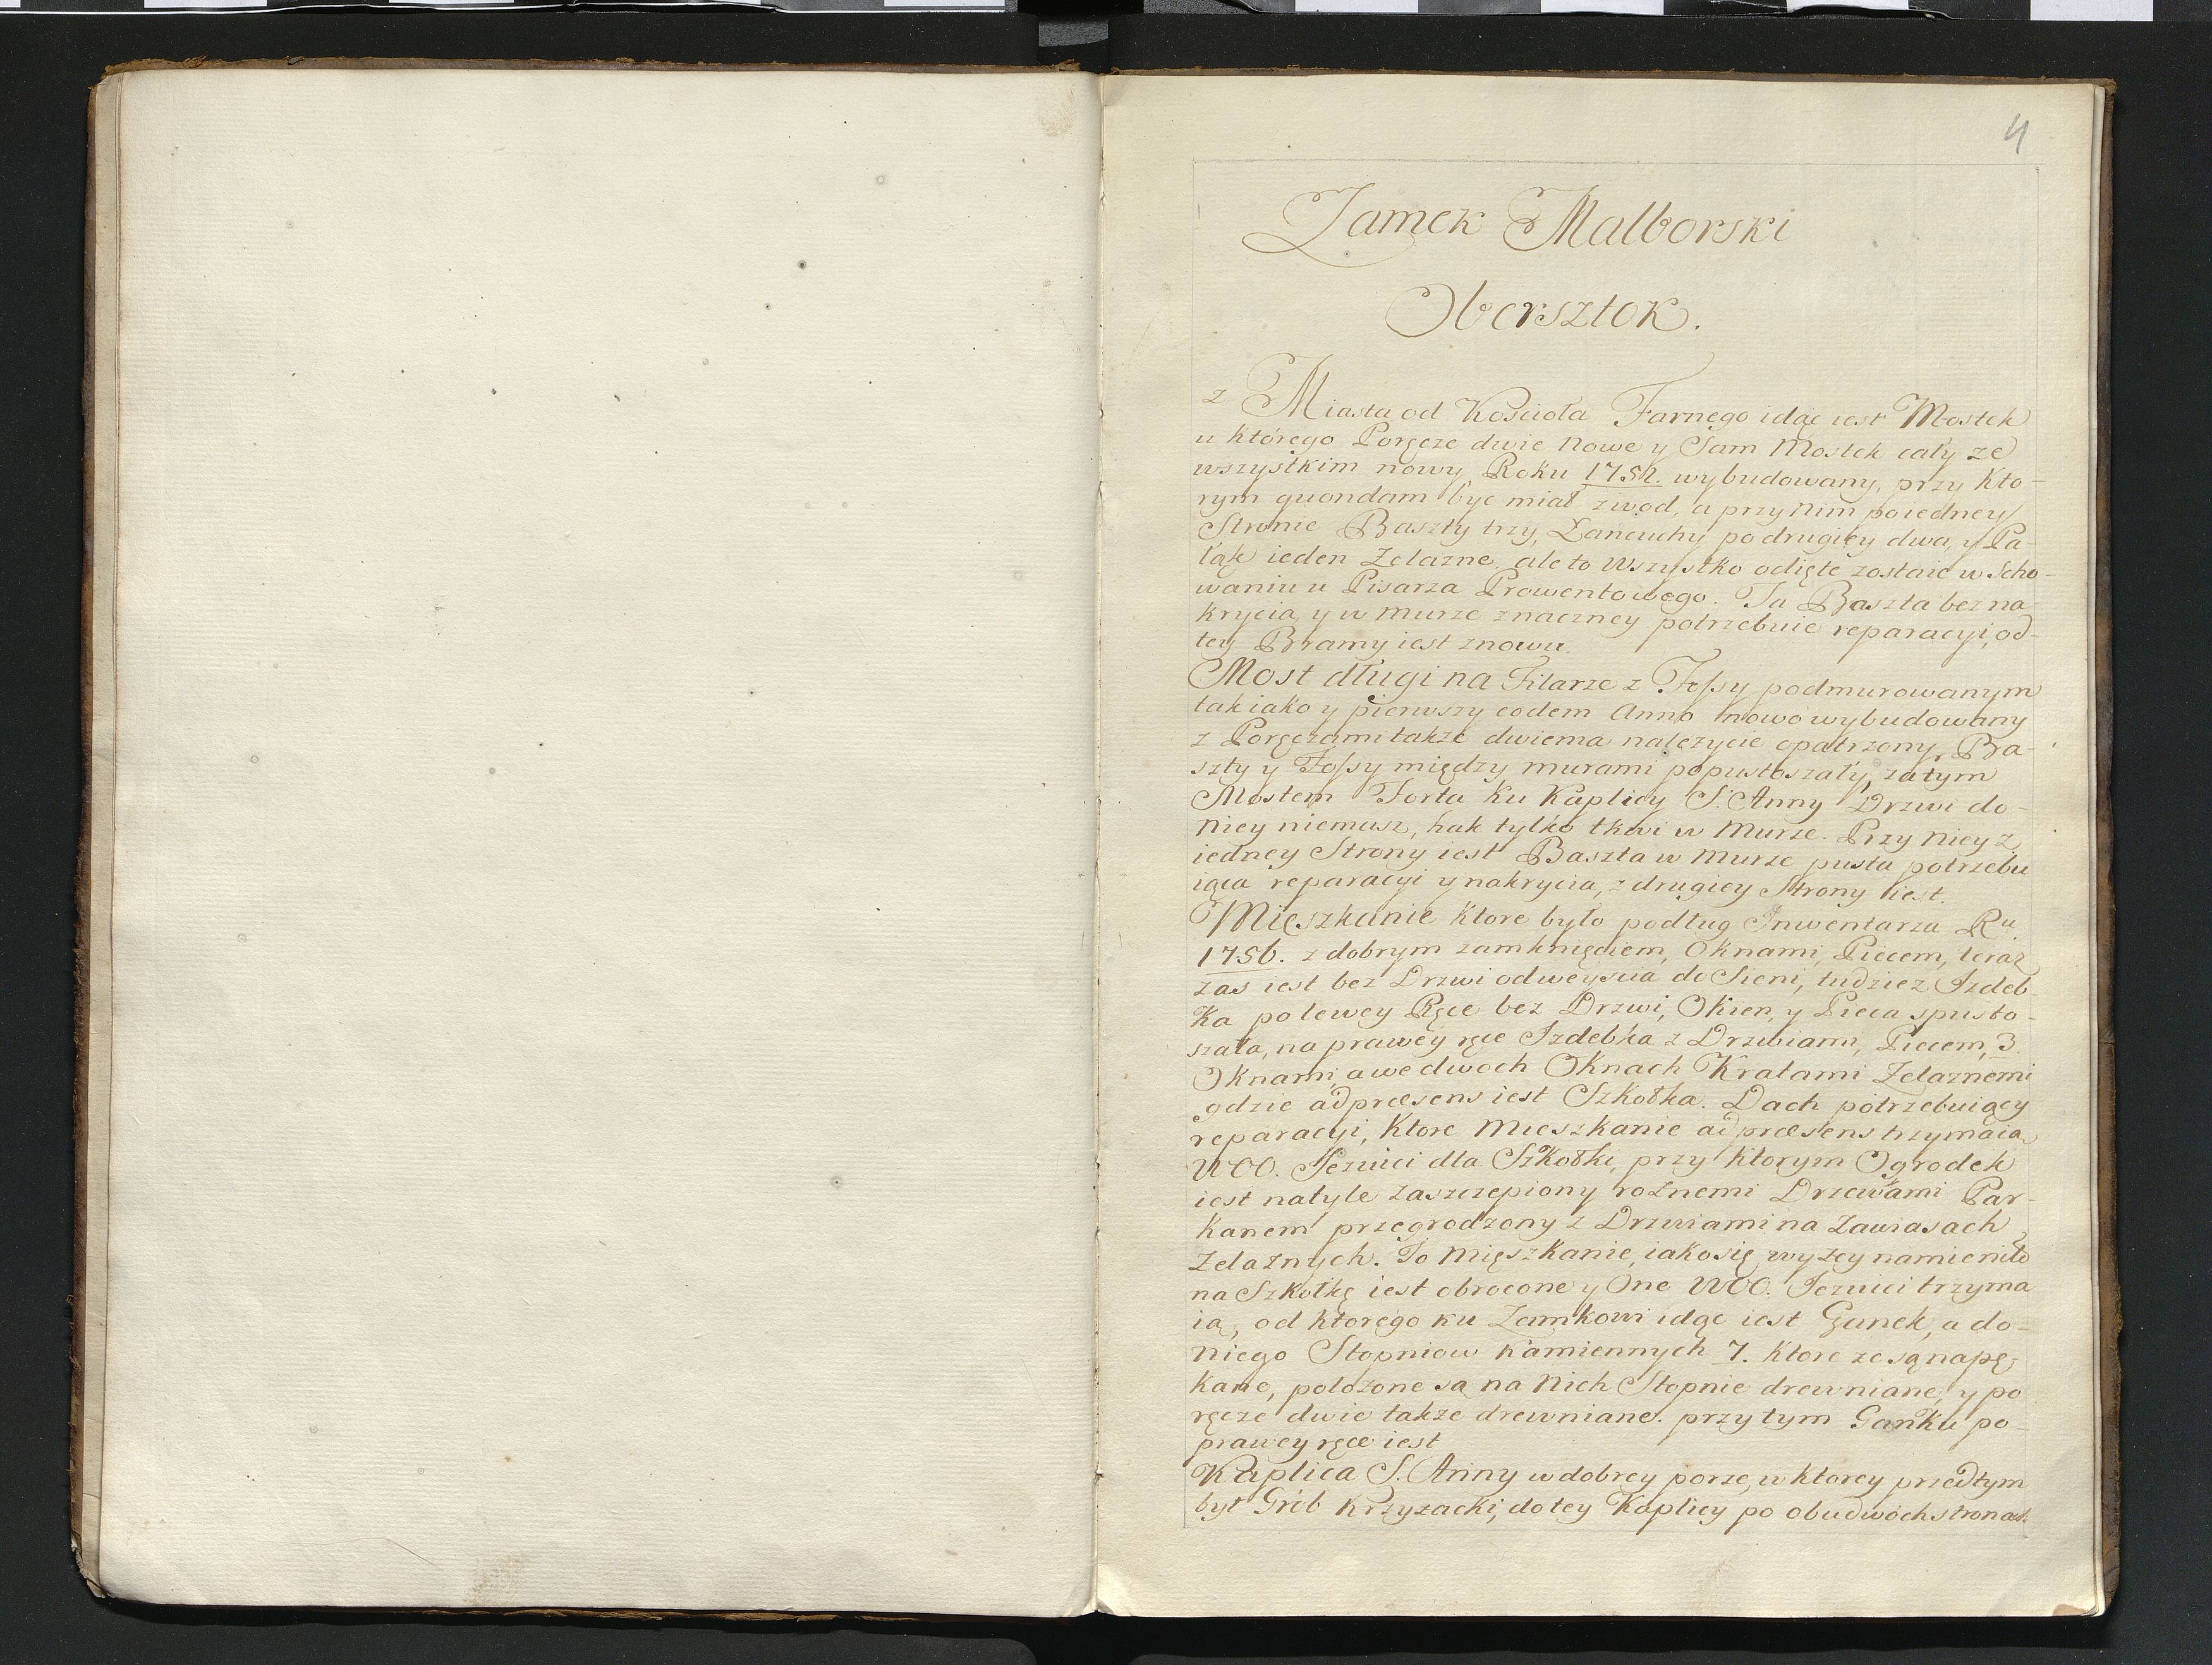 4
Zamek Malborski
Obersztok.
z Miasta od Kościoła Farnego idąc iest Mostek
u którego Poręcze dwie Nowe y Sam Mostek cały ze
wszystkim nowy, Roku wybudowany, przy Kto-
rym quondam być miał zwod, a przy Nim po iedney
Stronie Baszty trzy, Łancuchy po drugiey dwa, y Pa-
łąk ieden Zelazne, ale to Wszystko odięte zostaie w Scho-
waniu u Pisarza Prowentowego. Ta Baszta bez na
krycia, y w Murze znaczney potrzebuie reparacyi, od-
tey Bramy iest znowu.
Most długi na Filarze z Fossy podmurowanym
tak iako y pierwszy eodem Anno nowo wybudowany
z Poręczami także dwiema należycie opatrzony, Ba-
szty y Fossy między murami popustoszały, za tym
Mostem Forta Ku Kaplicy S. Anny Drzwi do-
Niey niemasz, hak tylko tkwi w Murze. Przy Niey z
iedney Strony iest Baszta w Murze pusta potrzebu
iąca reparacyi y nakrycia, z drugiey Strony iest.
Mieszkanie Ktore było podług Inwentarza Ru
1756. z dobrym zamknięciem, Oknami, Piecem, teraz
zas iest bez Drzwi od weyscia do Sieni, tudziez Izdeb
Ka po lewey Ręce bez Drzwi, Okien, y Pieca spusto-
szała, na prawey ręce Izdebka z Drzwiami, Piecem, 3.
Oknami, a we dwoch Oknach Kratami Zelaznemi
gdzie ad præsens iest Szkołka. Dach potrzebuiący
reparacyi, Ktore Mieszkanie ad præsens trzymaią
WOO. Jezuici dla Szkołki, przy Ktorym Ogrodek
iest na tyle zaszczepiony rożnemi Drzewami Par-
Kanem przegrodzony z Drzwiami na Zawiasach
Zelaznych. To Mięszkanie, iako się wyżey namieniło
na Szkołkę iest obrocone y One WOO. Jezuici trzyma
ią, od ktorego ku Zamkowi idąc iest Ganek, a do-
Niego Stopniow Kamiennych 7. Ktore ze są napę-
kane, położone są na Nich Stopnie drewniane, y po
ręcze dwie także drewniane. przy tym Ganku po-
prawey ręce iest
Kaplica S. Anny w dobrey porze, w ktorey przedtym
był Grób Krzyzacki, do tey Kaplicy po obudwóch stronach